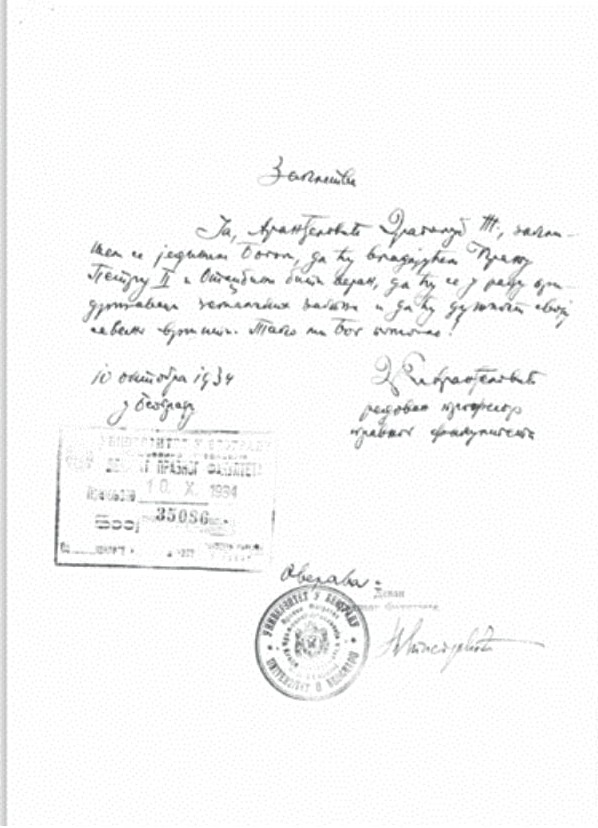 Заклетва
Ја, Аранђеловић Драгољуб Т., закли-
њем се јединим Богом, да ћу владајућем Краљу
Петру II и Отаџбини бити веран, да ћу се у раду при-
државати законских и да ћу дужност своју
савесно вршити. Тако ми Бог помогао!
10 октобра 1934
у Београду
Аранђеловић
редован професор
правног факултета
УНИВЕРЗИТЕТ У БЕОГРАДУ
ДЕКАНАТ ПРАВНОГ ФАКУЛТЕТА
10. X. 1934
35086
Оверава:
Декан
УНИВЕРЗИТЕТ У БЕОГРАДУ
UNIVERZITET U BEOGRADU